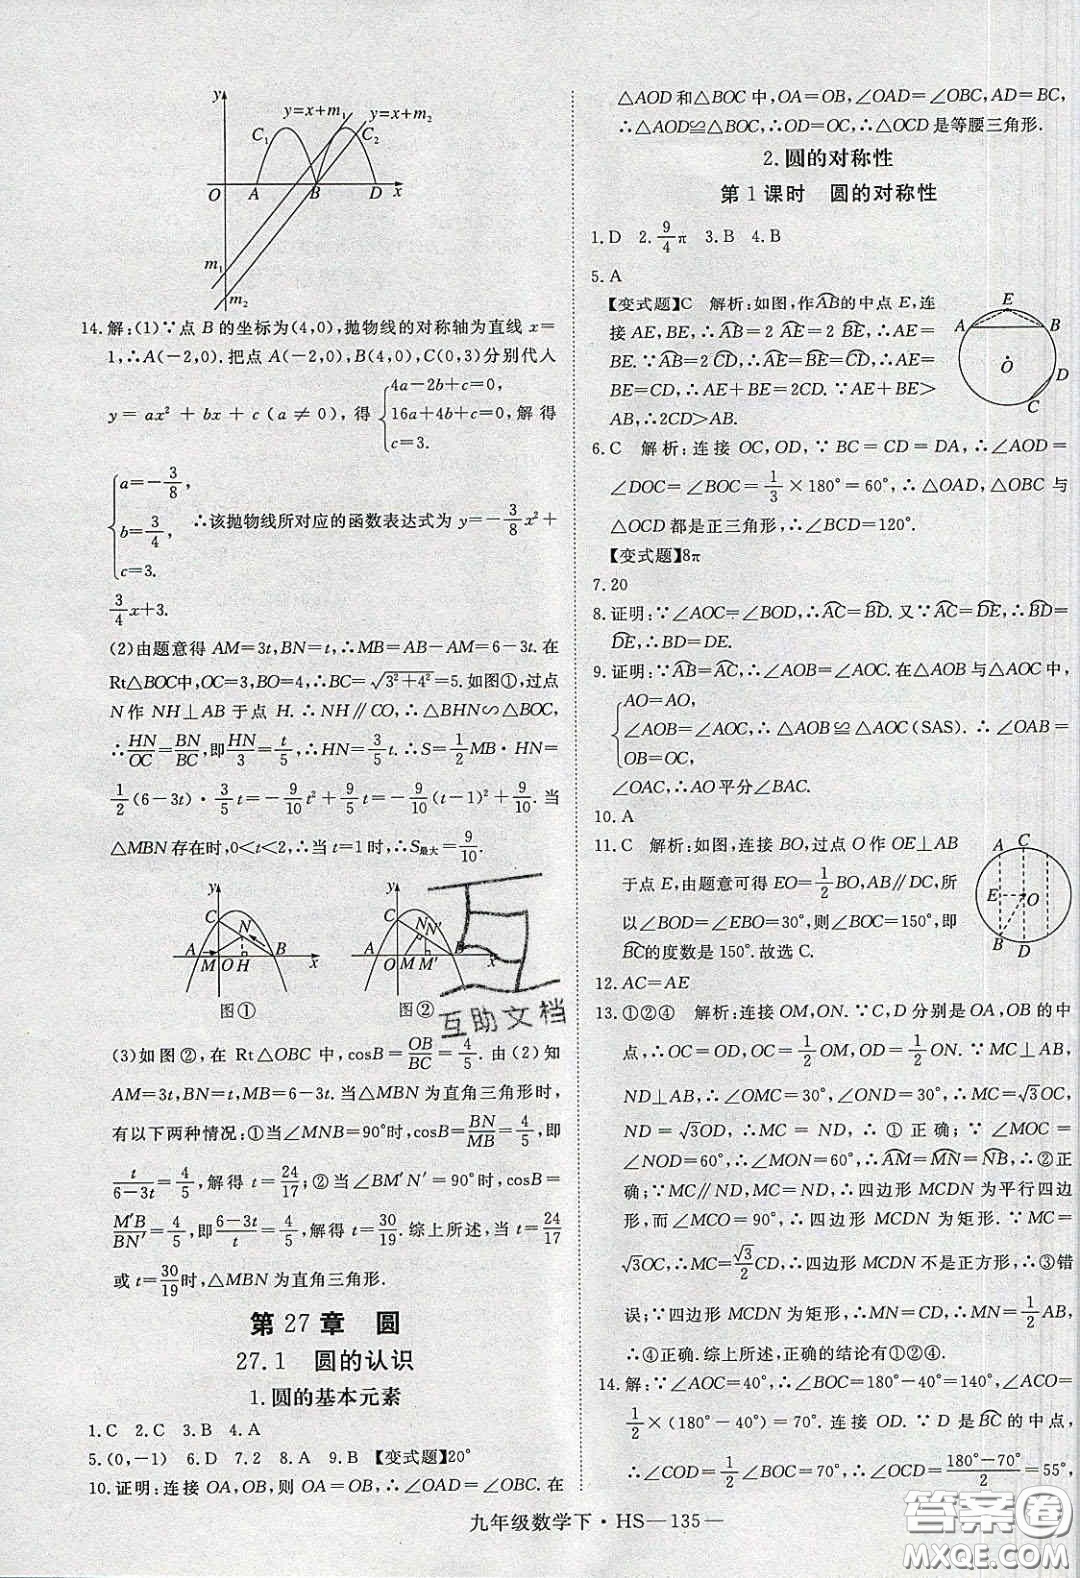 y
y=x+m₁
y=x+m₂
C₁
C₂
O A B D x
m₁
m₂
14.解:(1)∵点 B 的坐标为(4,0),抛物线的对称轴为直线 x=
1,∴A(-2,0).把点 A(-2,0),B(4,0),C(0,3)分别代人
y=ax²+bx+c(a≠0),得{4a-2b+c=0, 16a+4b+c=0, c=3. 解得
{a=-3/8, b=3/4, c=3. ∴该抛物线所对应的函数表达式为 y=-3/8x²+
3/4x+3.
(2)由题意得 AM=3t,BN=t,∴MB=AB-AM=6-3t.在
Rt△BOC中,OC=3,BO=4,∴BC=√(3²+4²)=5.如图①,过点
N 作 NH⊥AB 于点 H.∴NH∥CO,∴△BHN∽△BOC,
∴HN/OC=BN/BC,即HN/3=t/5,∴HN=3/5t.∴S=1/2MB·HN=
1/2(6-3t)·3/5t=-9/10t²+9/5t=-9/10(t-1)²+9/10.当
△MBN存在时,0<t<2,∴当 t=1时,∴S最大=9/10.
y
C
N
A M O H B x
图①
y
C
N N′
A O M M′ B x
图②
互助文档
(3)如图②,在 Rt△OBC 中,cosB=OB/BC=4/5.由(2)知
AM=3t,BN=t,MB=6-3t.当△MBN 为直角三角形时,
有以下两种情况:①当∠MNB=90°时,cosB=BN/MB=4/5,即
t/(6-3t)=4/5,解得 t=24/17;②当∠BM′N′=90°时,cosB=
M′B/BN′=4/5,即(6-3t)/t=4/5,解得 t=30/19.综上所述,当 t=24/17
或 t=30/19时,△MBN 为直角三角形.
第 27 章 圆
27.1 圆的认识
1.圆的基本元素
1.C 2.C 3.B 4.A
5.(0,-1) 6.D 7.2 8.A 9.B 【变式题】20°
10.证明:连接 OA,OB,则 OA=OB,∴∠OAD=∠OBC.在
△AOD 和△BOC 中,OA=OB,∠OAD=∠OBC,AD=BC,
∴△AOD≌△BOC,∴OD=OC,∴△OCD 是等腰三角形.
2.圆的对称性
第 1 课时 圆的对称性
1.D 2.9/4π 3.B 4.B
5.A
【变式题】C 解析:如图,作⌒AB的中点 E,连
接 AE,BE,∴⌒AB=2 ⌒AE=2 ⌒BE,∴AE=
BE.∵⌒AB=2 ⌒CD,∴⌒AE=⌒BE=⌒CD,∴AE=
BE=CD,∴AE+BE=2CD.∵AE+BE>
AB,∴2CD>AB.
E
A B
O D
C
6.C 解析:连接 OC,OD,∵BC=CD=DA,∴∠AOD=
∠DOC=∠BOC=1/3×180°=60°,∴△OAD,△OBC 与
△OCD 都是正三角形,∴∠BCD=120°.
【变式题】8π
7.20
8.证明:∵∠AOC=∠BOD,∴⌒AC=⌒BD.又∵⌒AC=⌒DE,∴⌒BD=
⌒DE,∴BD=DE.
9.证明:∵⌒AB=⌒AC,∴∠AOB=∠AOC.在△AOB 与△AOC 中,
{AO=AO, ∠AOB=∠AOC, OB=OC, ∴△AOB≌△AOC(SAS).∴∠OAB=
∠OAC,∴AO平分∠BAC.
10.A
11.C 解析:如图,连接 BO,过点 O 作 OE⊥AB
于点 E,由题意可得 EO=1/2BO,AB∥DC,所
以∠BOD=∠EBO=30°,则∠BOC=150°,即
⌒BC的度数是 150°.故选 C.
A C
E O
B D
12.AC=AE
13.①②④ 解析:连接 OM,ON.∵C,D 分别是 OA,OB 的中
点,∴OC=OD,∴OC=1/2OM,OD=1/2ON.∵MC⊥AB,
ND⊥AB,∴∠OMC=30°,∠OND=30°.∴MC=√3OC,
ND=√3OD,∴MC=ND,∴①正确;∵∠MOC=
∠NOD=60°,∴∠MON=60°,∴⌒AM=⌒MN=⌒NB,∴②正
确;∵MC∥ND,MC=ND,∴四边形 MCDN 为平行四边
形.∵∠MCO=90°,∴四边形 MCDN 为矩形.∵MC=
√3OC,∴MC=√3/2CD,∴四边形 MCDN 不是正方形,∴③错
误;∵四边形 MCDN 为矩形,∴MN=CD,∴MN=1/2AB,
∴④正确.综上所述,正确的结论有①②④.
14.解:∵∠AOC=40°,∴∠BOC=180°-40°=140°,∠ACO=
1/2×(180°-40°)=70°.连接 OD.∵D 是⌒BC的中点,
∴∠COD=1/2∠BOC=70°,∴∠OCD=(180°-70°)/2=55°,
九年级数学下·HS—135—
答案圈
MXQE.COM